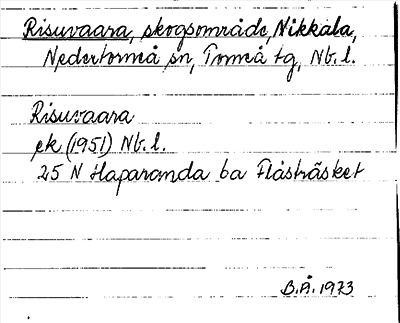 Risuvaara, skogsområde, Nikkala,
Nedertorneå sn, Torneå tg, Nb. l.
Risuvaara
ek (1951) Nb. l.
25 N Haparanda ba Flåsträsket
B.Å. 1973